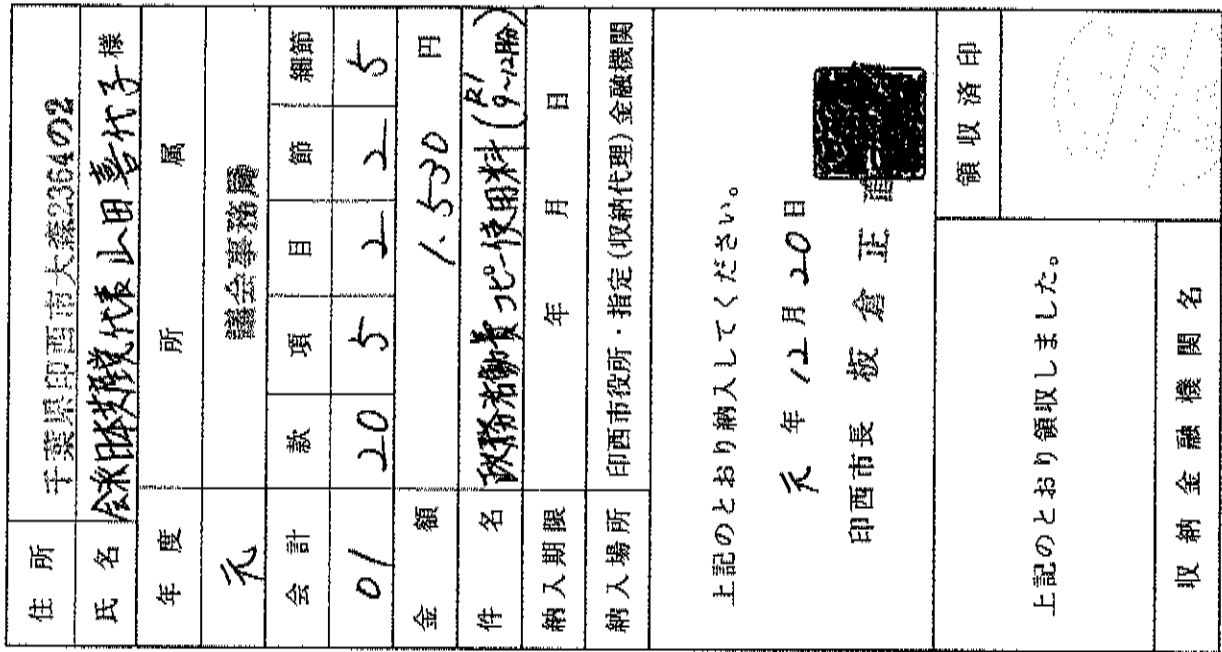 住所 千葉県印西市大森2364の2
氏名 会派日本共産党代表 山田喜代子 様
年度 所属
元 議会事務局
会計 款 項 目 節 細節
01 20 5 2 2 5
金額 1,530 円
件名 政務活動費コピー使用料(R1 9~12月分)
納入期限 年 月 日
納入場所 印西市役所・指定(収納代理)金融機関
上記のとおり納入してください。
元 年 12 月 20 日
印西市長 板倉正直
領収済印
上記のとおり領収しました。
収納金融機関名